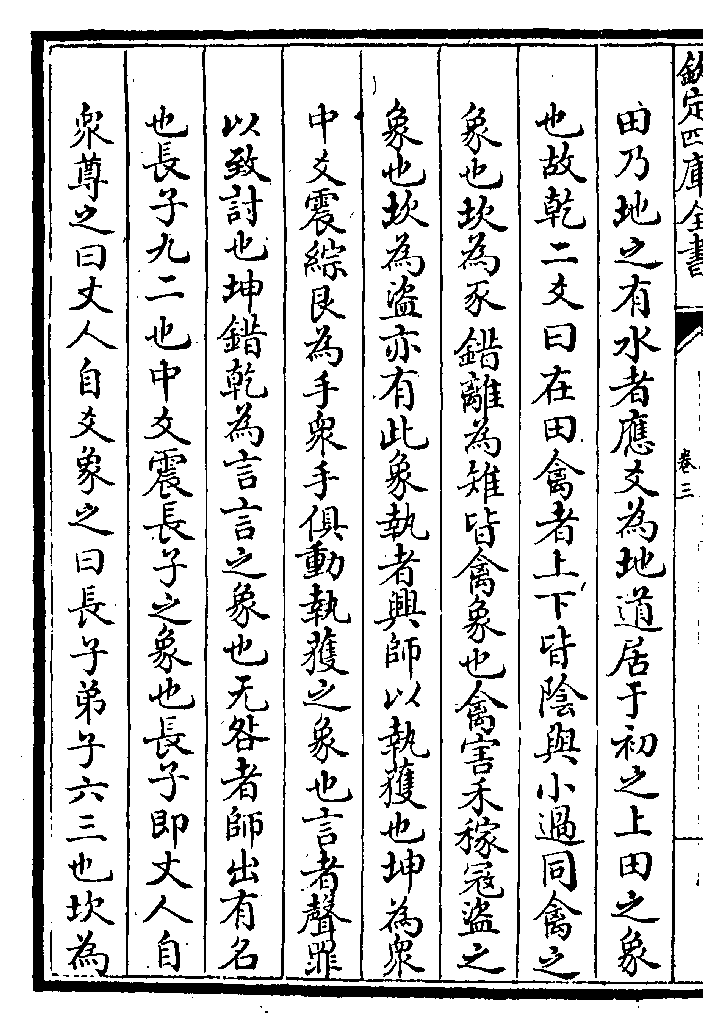 欽定四庫全書
卷三
田乃地之有水者應爻為地道居于初之上田之象
也故乾二爻曰在田禽者上下皆陰與小過同禽之
象也坎為豕錯離為雉皆禽象也禽害禾稼寇盜之
象也坎為盜亦有此象執者興師以執獲也坤為衆
中爻震綜艮為手衆手俱動執獲之象也言者聲罪
以致討也坤錯乾為言言之象也无咎者師出有名
也長子九二也中爻震長子之象也長子即丈人自
衆尊之曰丈人自爻象之曰長子弟子六三也坎為